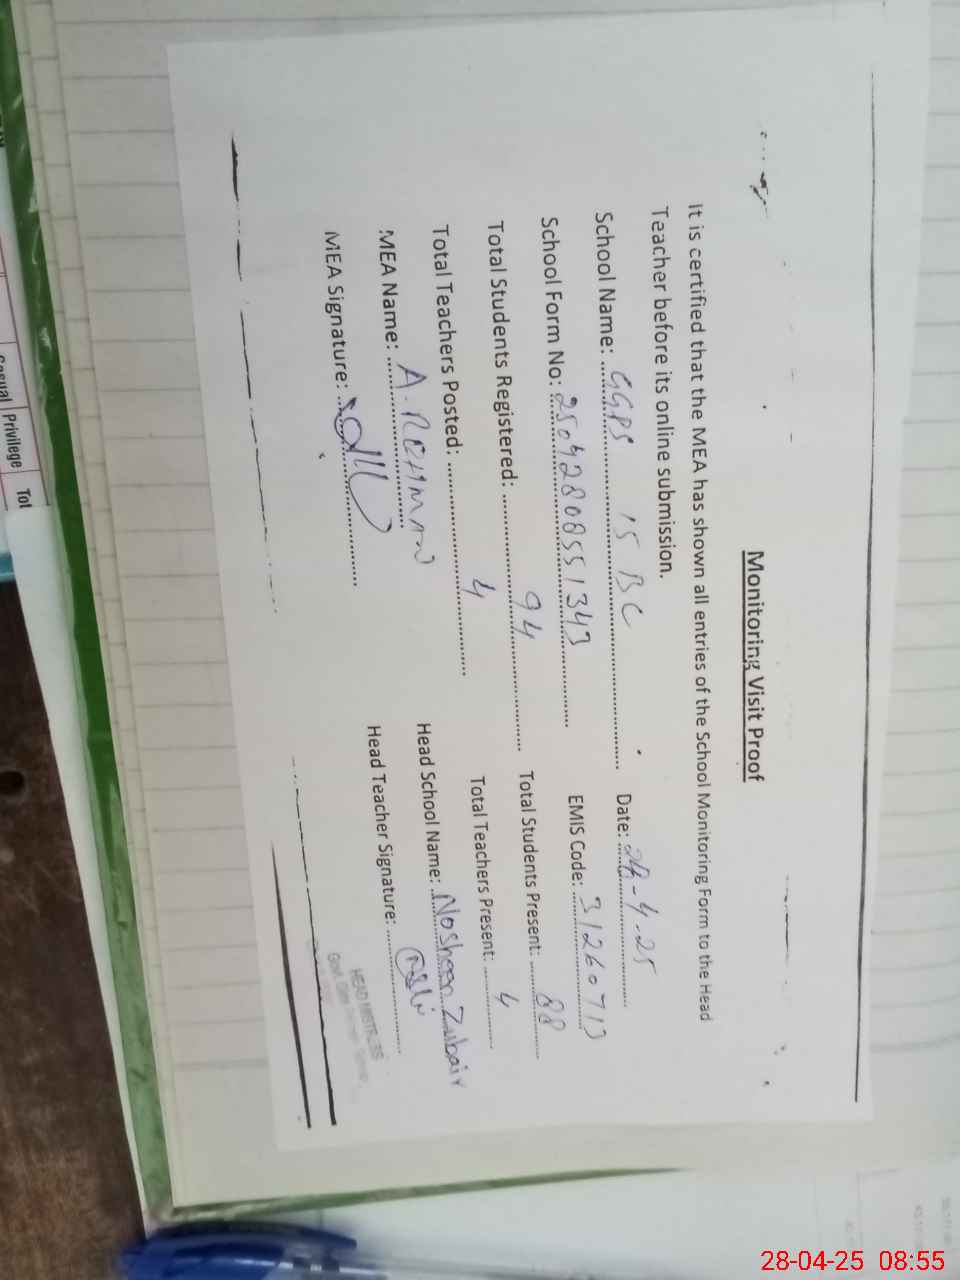 Monitoring Visit Proof
It is certified that the MEA has shown all entries of the School Monitoring Form to the Head
Teacher before its online submission.
School Name: GGPS 15 BC Date: 28-4-25
School Form No: 25042808551343 EMIS Code: 31260713
Total Students Registered: 94 Total Students Present: 88
Total Teachers Posted: 4 Total Teachers Present: 4
MEA Name: A. REHMAN Head School Name: Nosheen Zubair
MEA Signature: Head Teacher Signature:
HEAD MISTRESS
Govt. Girls
Casual Privilege Tot
28-04-25 08:55